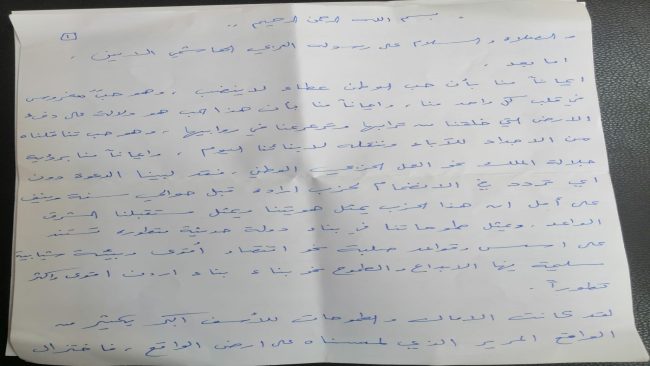 ١
بسم الله الرحمن الرحيم ..
و الصلاة و السلام على رسوله العربي الهاشمي الامين .
اما بعد .
ايماناً منا بأن حب الوطن عطاء لا ينضب . وهو حبٌ مغروس
في قلب كل واحد منا . وايماناً منا بأن هذا الحب هو دلالت على
الارض التي خلقنا من ترابها وترعرعنا في روابيها . وهو حب تناقلناه
من الاجداد للآباء وننقله لابنائنا اليوم . وايماناً منا برؤية
جلالة الملك نحو العمل الحزبي الوطني . فقد لبينا الدعوة دون
اي تردد في الانضمام لحزب اراده قبل حوالي سنة ونيف
على أمل ان هذا الحزب يمثل هويتنا ويمثل مستقبلنا المشرق
الواعد . ويمثل طموحاتنا في بناء دولة حديثة متطوره تستند
على اسس وقواعد صلبة نحو اقتصاد أقوى وبيئة شبابية
سليمة فيها الابداع والطموح نحو بناء بناء اردن اقوى واكثر
تطوراً .
لقد كانت الامال والطموحات للأسف اكبر بكثير من
الواقع المرير الذي لمسناه على ارض الواقع ، فاختزال